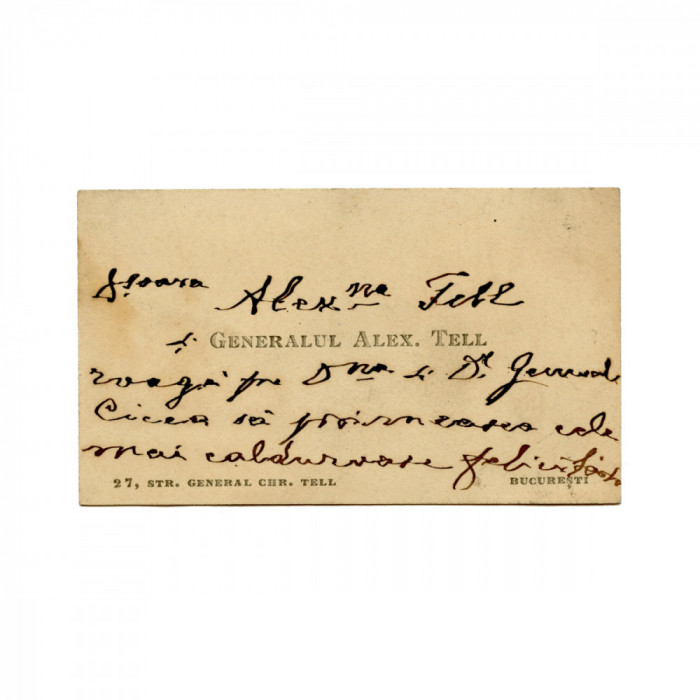 Alex^na Tell
și GENERALUL ALEX. TELL
roagă pe D^na și D^l General
Cicea să primească cele
mai călduroase felicitări
27, STR. GENERAL CHR. TELL BUCUREȘTI